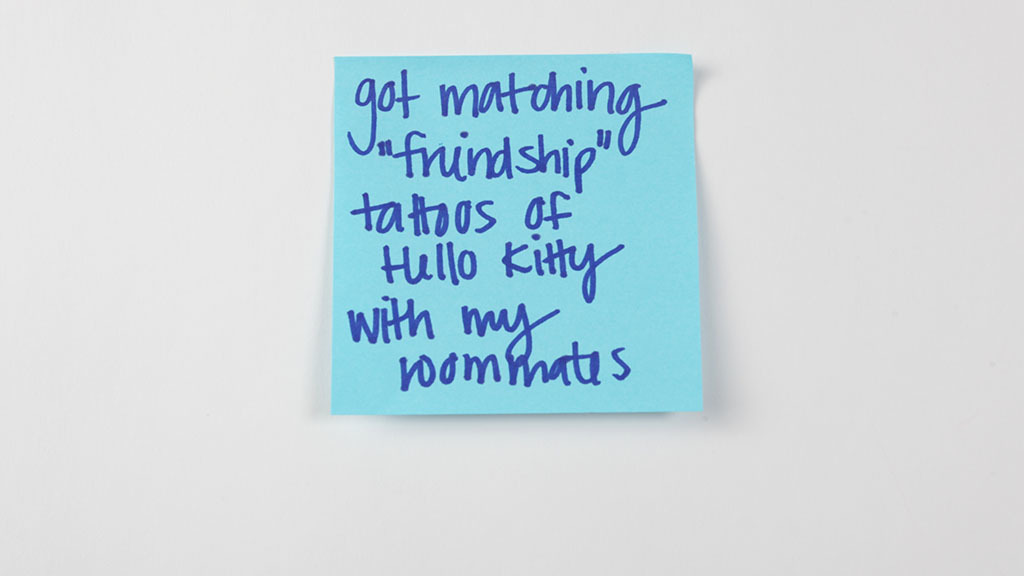 got matching
"friendship"
tattoos of
Hello Kitty
with my
roommates